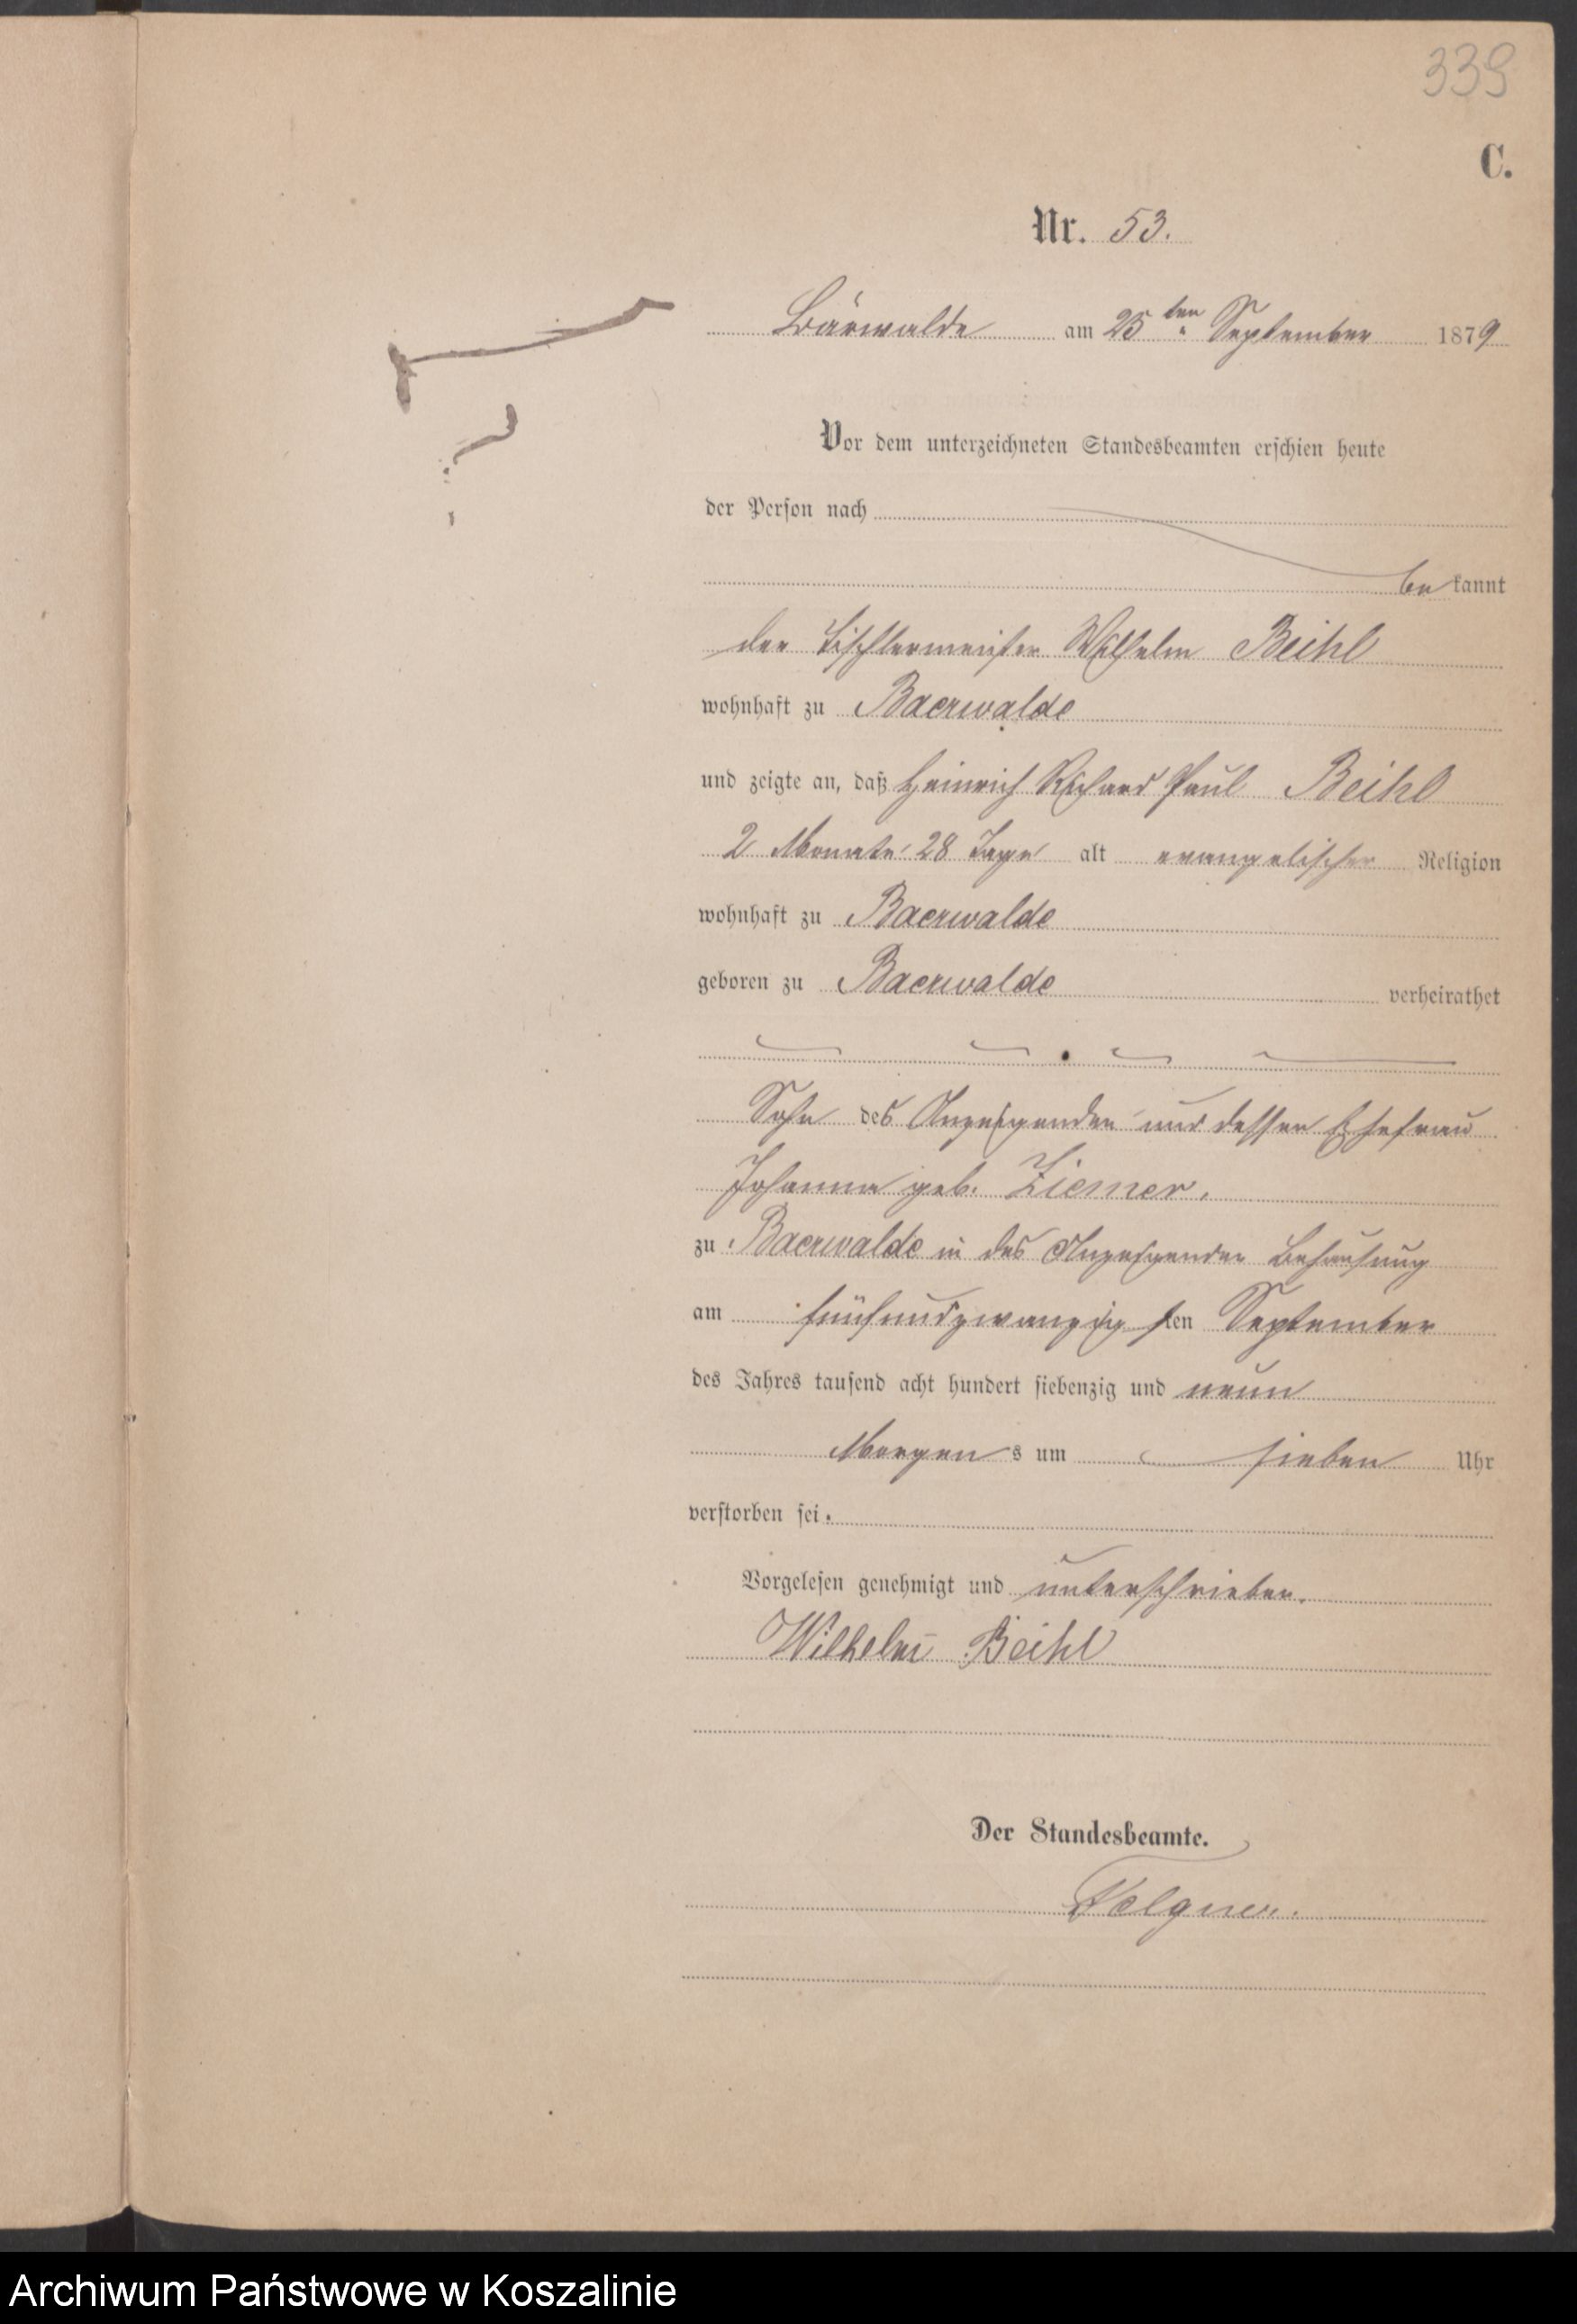 339
C.
Nr. 53.
Bärwalde am 25ten September 1879
Vor dem unterzeichneten Standesbeamten erschien heute
der Person nach
be kannt
der Tischlermeister Wilhelm Beihl
wohnhaft zu Baerwalde
und zeigte an, daß Heinrich Richard Paul Beihl
2 Monate 28 Tage alt evangelischer Religion
wohnhaft zu Baerwalde
geboren zu Baerwalde verheirathet
Sohn des Anzeigenden und dessen Ehefrau
Johanna geb. Ziemer.
zu Baerwalde in des Anzeigenden Behausung
am fünfundzwanzigsten September
des Jahres tausend acht hundert siebenzig und neun
Morgens um sieben Uhr
verstorben sei.
Vorgelesen genehmigt und unterschrieben.
Wilhelm Beihl
Der Standesbeamte.
Archiwum Państwowe w Koszalinie